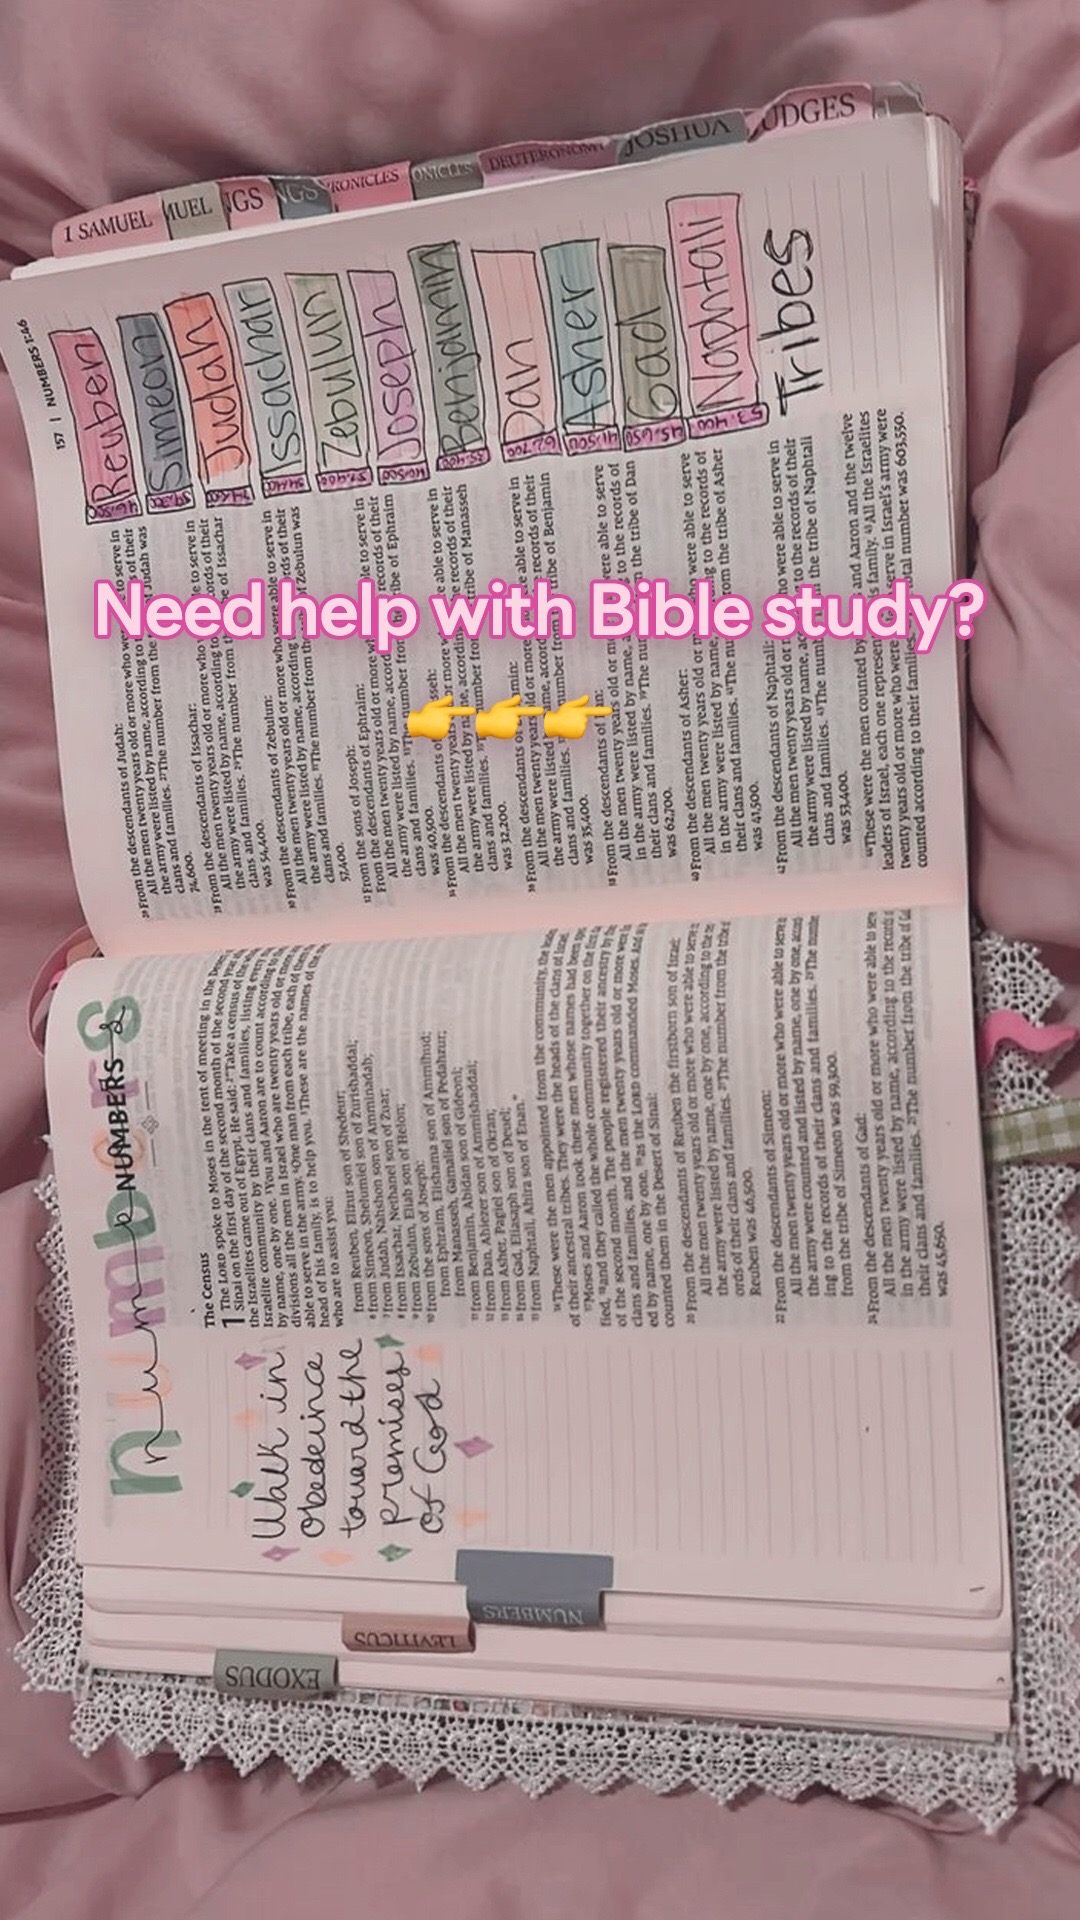 Need help with Bible study?
1 SAMUEL
MUEL
NGS
NGS
RONICLES
ONICLES
DEUTERONOMY
JOSHUA
UDGES
numbers
NUMBERS
Walk in
Obedeince
toward the
promises
of God
The Census
1 The LORD spoke to Moses in the tent of meeting in the Desert
Sinai on the first day of the second month of the second year
the Israelites came out of Egypt. He said: ²"Take a census of the
Israelite community by their clans and families, listing every
by name, one by one. ³You and Aaron are to count according to
divisions all the men in Israel who are twenty years old or more
able to serve in the army. ⁴One man from each tribe, each of them
head of his family, is to help you. ⁵These are the names of the
who are to assist you:
from Reuben, Elizur son of Shedeur;
⁶from Simeon, Shelumiel son of Zurishaddai;
⁷from Judah, Nahshon son of Amminadab;
⁸from Issachar, Nethanel son of Zuar;
⁹from Zebulun, Eliab son of Helon;
¹⁰from the sons of Joseph:
from Ephraim, Elishama son of Ammihud;
from Manasseh, Gamaliel son of Pedahzur;
¹¹from Benjamin, Abidan son of Gideoni;
¹²from Dan, Ahiezer son of Ammishaddai;
¹³from Asher, Pagiel son of Okran;
¹⁴from Gad, Eliasaph son of Deuel;
¹⁵from Naphtali, Ahira son of Enan."
¹⁶These were the men appointed from the community, the leaders
of their ancestral tribes. They were the heads of the clans of Israel.
¹⁷Moses and Aaron took these men whose names had been
fied, ¹⁸and they called the whole community together on the first
of the second month. The people registered their ancestry by their
clans and families, and the men twenty years old or more were
ed by name, one by one, ¹⁹as the LORD commanded Moses. And
counted them in the Desert of Sinai:
²⁰From the descendants of Reuben the firstborn son of Israel:
All the men twenty years old or more who were able to serve
the army were listed by name, one by one, according to the
ords of their clans and families. ²¹The number from the tribe
Reuben was 46,500.
²²From the descendants of Simeon:
All the men twenty years old or more who were able to serve
the army were counted and listed by name, one by one,
ing to the records of their clans and families. ²³The number
from the tribe of Simeon was 59,300.
²⁴From the descendants of Gad:
All the men twenty years old or more who were able to serve
in the army were listed by name, according to the records
their clans and families. ²⁵The number from the tribe of Gad
was 45,650.
157 | NUMBERS 1:46
²⁶From the descendants of Judah:
All the men twenty years old or more who were to serve in
the army were listed by name, according to of their
clans and families. ²⁷The number from the Judah was
74,600.
²⁸From the descendants of Issachar:
All the men twenty years old or more who able to serve in
the army were listed by name, according to records of their
clans and families. ²⁹The number from the of Issachar
was 54,400.
³⁰From the descendants of Zebulun:
All the men twenty years old or more who were able to serve in
the army were listed by name, according records of their
clans and families. ³¹The number from the of Zebulun was
57,400.
³²From the sons of Joseph:
From the descendants of Ephraim:
All the men twenty years old or more able to serve in
the army were listed by name, according records of their
clans and families. ³³The number from the tribe of Ephraim
was 40,500.
³⁴From the descendants of
All the men twenty years old or more able to serve in
the army were listed by name, according records of their
clans and families. number from tribe of Manasseh
was 32,200.
³⁶From the descendants of
All the men twenty years old or more able to serve in
the army were listed by name, according records of their
clans and families. number from tribe of Benjamin
was 35,400.
³⁸From the descendants of
All the men twenty years old or more were able to serve
in the army were listed by name, to the records of
their clans and families. ³⁹The number the tribe of Dan
was 62,700.
⁴⁰From the descendants of Asher:
All the men twenty years old or more who were able to serve
in the army were listed by name, to the records of
their clans and families. ⁴¹The number from the tribe of Asher
was 41,500.
⁴²From the descendants of Naphtali:
All the men twenty years old or more who were able to serve in
the army were listed by name, to the records of their
clans and families. ⁴³The number the tribe of Naphtali
was 53,400.
⁴⁴These were the men counted by and Aaron and the twelve
leaders of Israel, each one his family. ⁴⁵All the Israelites
twenty years old or more who were serve in Israel's army were
counted according to their families. total number was 603,550.
Reuben
46,500
Simeon
59,300
Judah
74,600
Issachar
54,400
Zebulun
57,400
Joseph
40,500
Benjamin
35,400
Dan
62,700
Asher
41,500
Gad
45,650
Naphtali
53,400
Tribes
NUMBERS
LEVITICUS
EXODUS